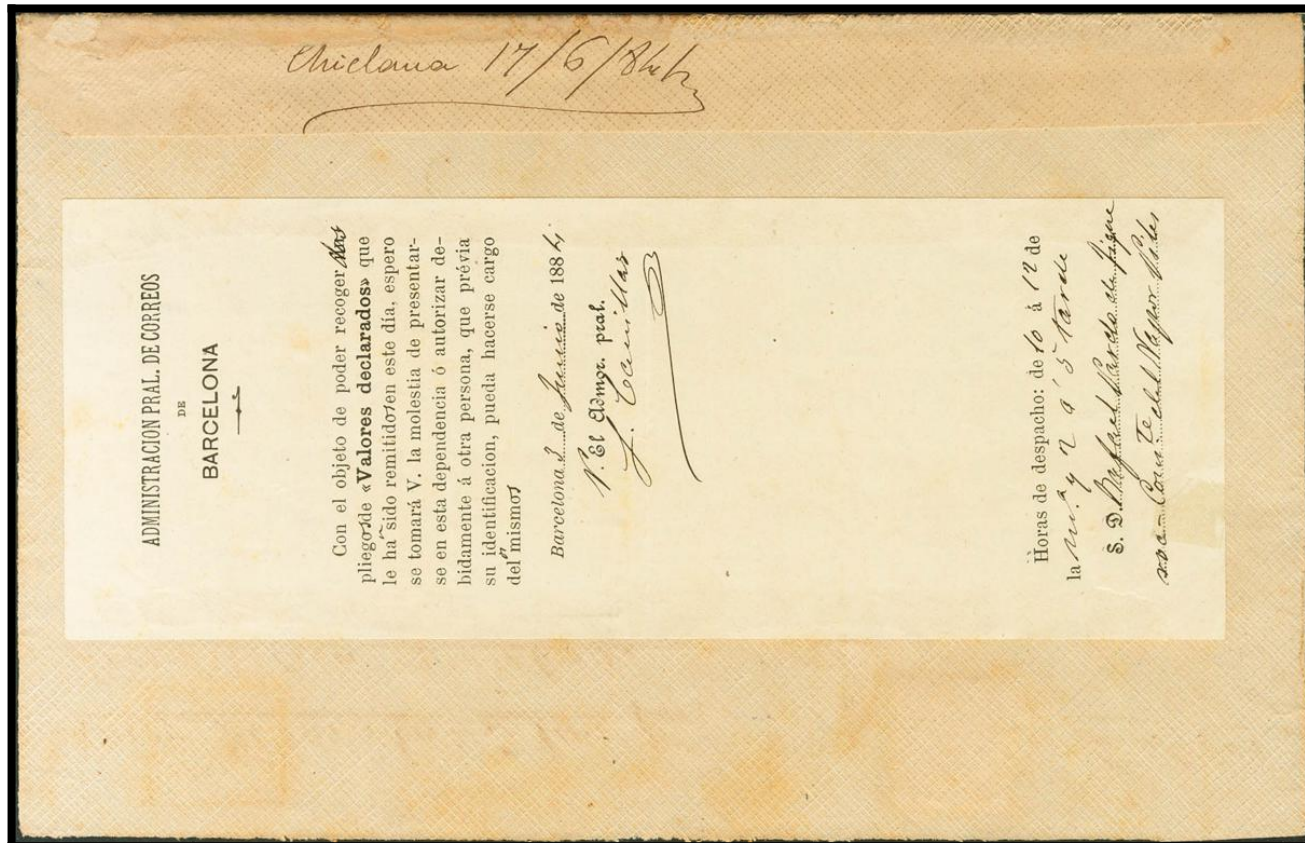 Chiclana 17/6/84
ADMINISTRACION PRAL. DE CORREOS
DE
BARCELONA
Con el objeto de poder recoger los
pliegos de «Valores declarados» que
le han sido remitidos en este día, espero
se tomará V. la molestia de presentar-
se en esta dependencia ó autorizar de-
bidamente á otra persona, que prévia
su identificacion, pueda hacerse cargo
del mismos
Barcelona 2 de Junio de 1884
P. El Admor. pral.
Horas de despacho: de 10 á 12 de
la mñ.ª y 2 á 5 tarde
S. D. Rafael Pardo de Figue
roa Comte del Vapor